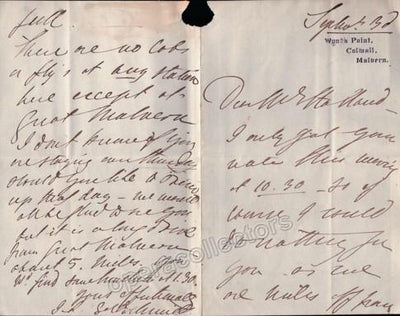 Septbr. 3d
Wynd's Point,
Colwall,
Malvern.
Dear Mr Stoddard
I only got your
note this morning
at 10.30 – so of
course I could
do nothing for
you as we
are miles off from
full.
There are no cabs
or fly's at any station
here except at
Great Malvern
I don't know if you
are staying over
should you like to
up that day – we would
all be glad to see you
but it is a long drive
from Great Malvern
about 5 miles. You
wd find
1.30
Yours
operacollectors